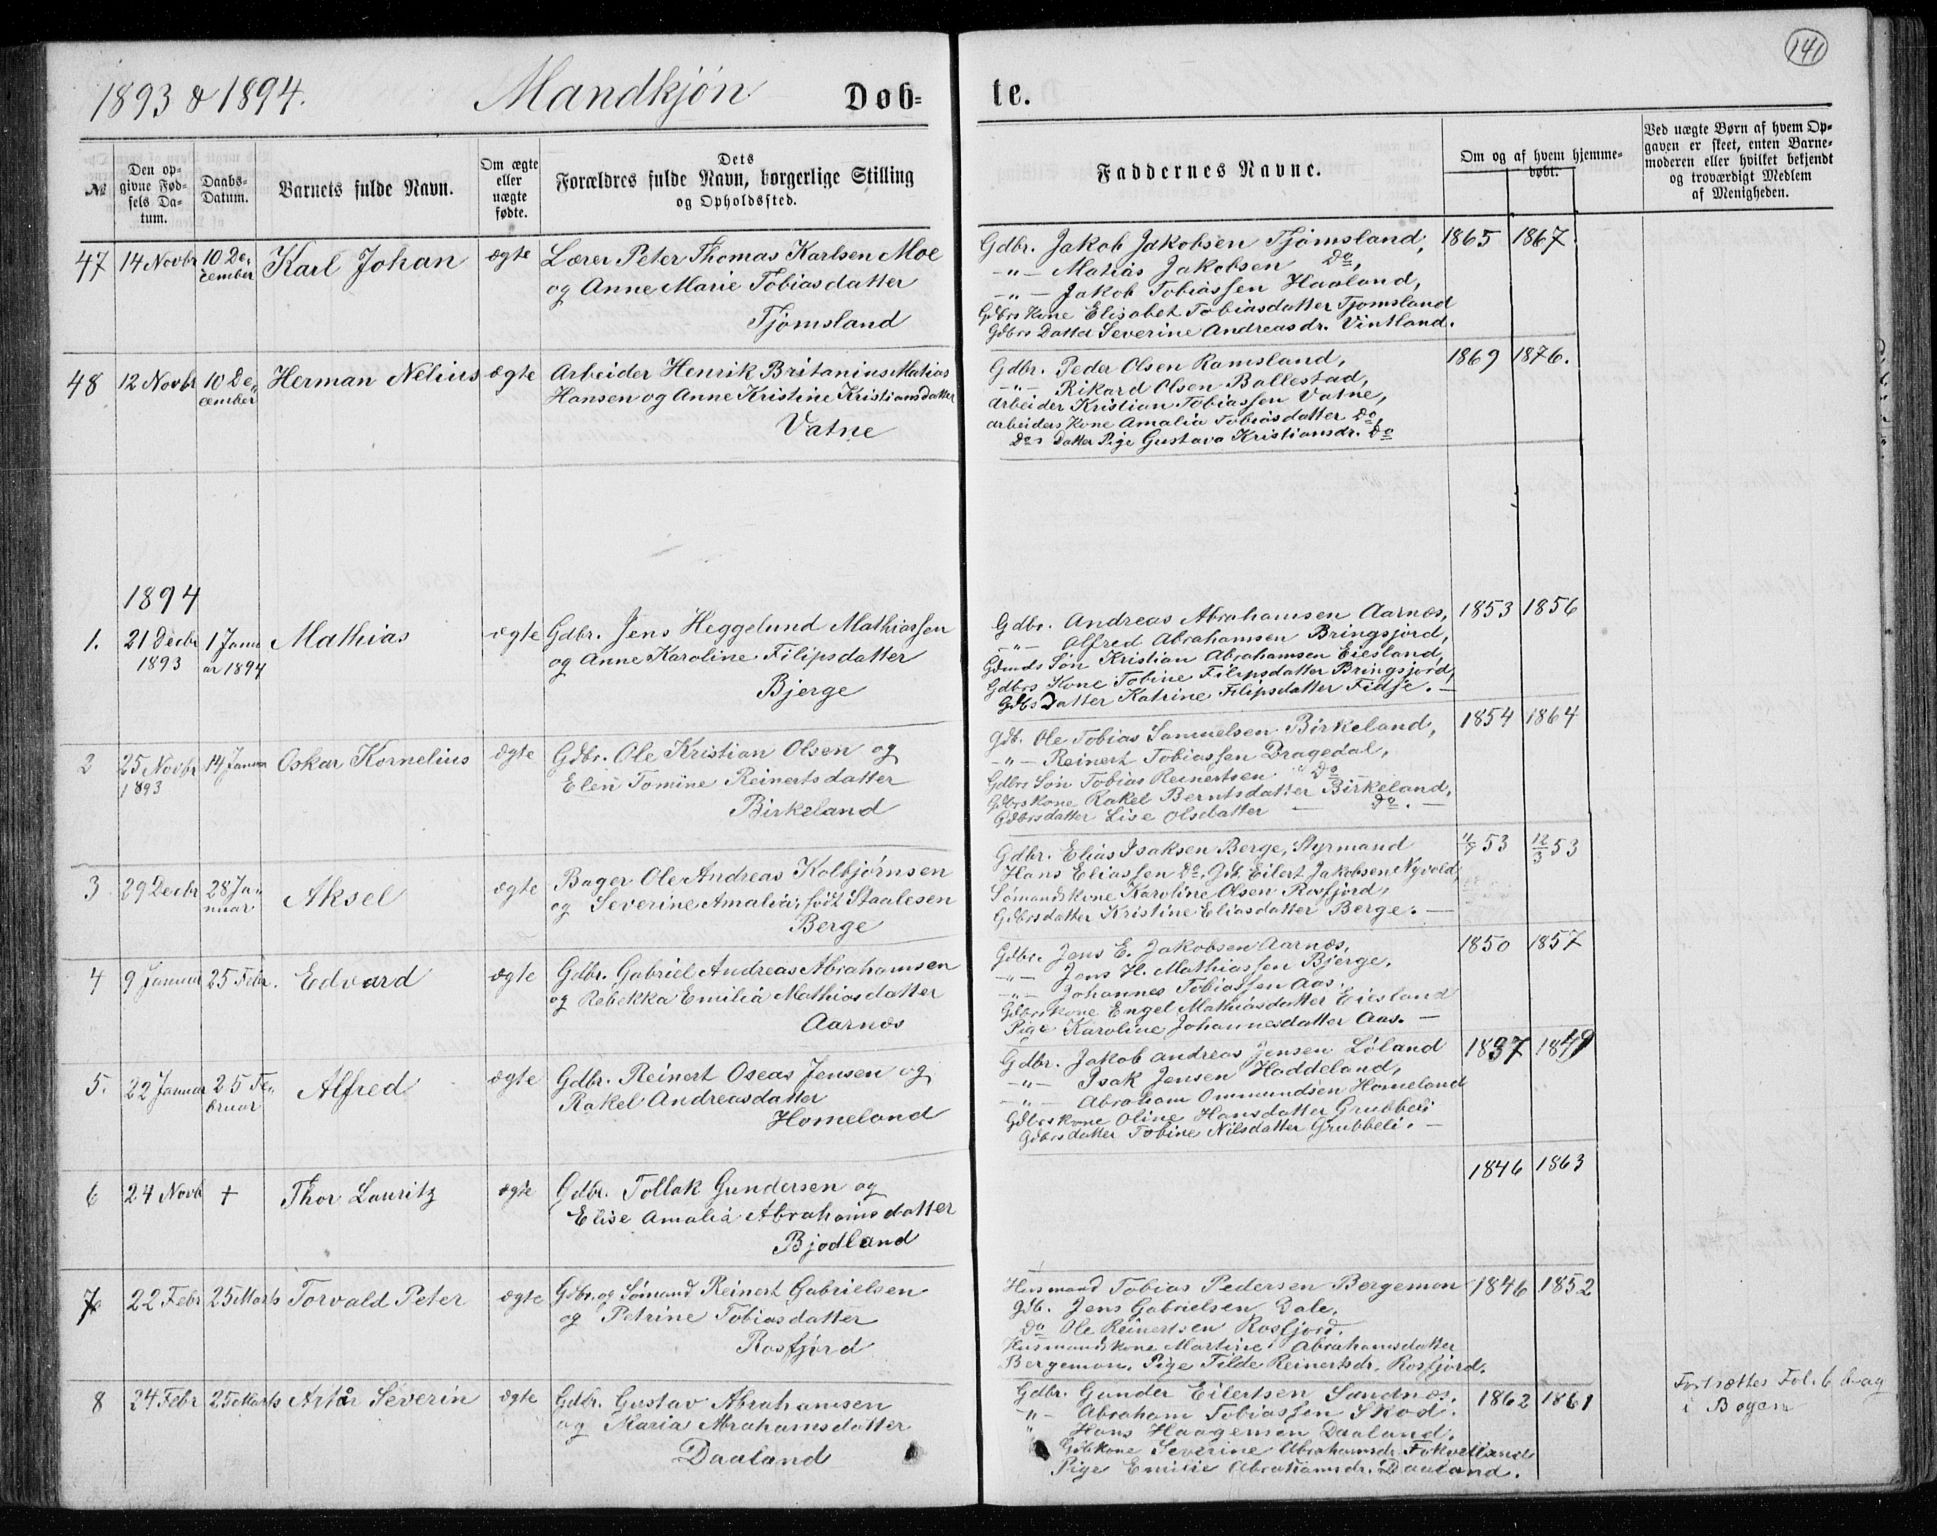 141
1893 & 1894. Mandkjøn Døb= te.
№
Den op-
givne Fød-
sels Da-
tum.
Daabs-
Datum.
Barnets fulde Navn.
Om ægte
eller
uægte
fødte.
Dets
Forældres fulde Navn, borgerlige Stilling
og Opholdssted.
Faddernes Navne.
Om og af hvem hjemme-
døbt.
Ved uægte Børn af hvem Op-
gaven er skeet, enten Barne-
moderen eller hvilket bekjendt
og troværdigt Medlem
af Menigheden.
47 14 Novbr 10 De-
cember
Karl Johan
ægte
Lærer Peter Thomas Karlsen Moe
og Anne Marie Tobiasdatter
Tjomsland
Gdbr. Jakob Jakobsen Tjømsland,
-"- Matias Jakobsen Do,
-"- Jakob Tobiassen Haaland,
Gdbrs Kone Elisabet Tobiasdatter Tjomsland
Gdbrs Datter Severine Andreasdr. Vintland.
1865 1867.
48 12 Novbr 10 De-
cember
Herman Nelius
ægte
Arbeider Henrik Britanius Matias
Hansen og Anne Kristine Kristiansdatter
Vatne
Gdbr. Peder Olsen Ramsland,
-"- Rikard Olsen Ballestad,
Arbeider Kristian Tobiassen Vatne,
arbeiders Kone Amalia Tobiasdatter Do,
Dos Datter Pige Gustava Kristiansdr. Do
1869 1876.
1894
1. 21 Decbr
1893
1 Janu
ar 1894
Mathias
ægte
Gdbr. Jens Heggelund Mathiassen
og Anne Karoline Filipsdatter
Bjerge
Gdbr. Andreas Abrahamsen Aarnes,
-"- Alfred Abrahamsen Bringsjord,
Gdmds Søn Kristian Abrahamsen Eiesland,
Gdbrs Kone Tobine Filipsdatter Bringsjord,
Gdbs Datter Katrine Filipsdatter Fidje. -
1853 1856
2 25 Novbr
1893
14 Januar
Oskar Kornelius
ægte
Gdbr. Ole Kristian Olsen og
Elen Tomine Reinertsdatter
Birkeland
Gdb. Ole Tobias Samuelsen Birkeland,
-"- Reinert Tobiassen Dragedal,
Gdbrs Søn Tobias Reinertsen Do
Gdbrskone Rakel Berntsdatter Birkeland,
Gdbrsdatter Lise Olsdatter - Do. -
1854 1864
3 29 Decbr 28 Ja-
nuar
Aksel
ægte
Bager Ole Andreas Kolbjørnsen
og Severine Amalia, født Staalesen
Berge
Gdbr. Elias Isaksen Berge, Styrmand
Hans Eliassen Do. Gdb. Eilert Jakobsen Nyvold,
Sømandskone Karoline Olsen Rosfjord,
Gdbrsdatter Kristine Eliasdatter Berge. -
53 12/3 53
4 9 Januar 25 Febr.
Edvard
ægte
Gdbr. Gabriel Andreas Abrahamsen
og Rebekka Emilia Mathiasdatter
Aarnes
Gdbr. Jens E. Jakobsen Aarnes,
-"- Jens H. Mathiassen Bjerge.
-"- Johannes Tobiassen Aas.
Gdbrskone Engel Mathiasdatter Eiesland
Pige Karoline Johannesdatter Aas. -
1850 1857
5. 22 Januar 25 Fe-
bruar
Alfred
ægte
Gdbr. Reinert Oseas Jensen og
Rakel Andreasdatter
Homeland
Gdbr. Jakob Andreas Jensen Löland
-"- Isak Jensen Haddeland,
-"- Abraham Ommundsen Homeland
Gdbrskone Oline Hansdatter Grubbeli
Gdbrsdatter Tobine Nilsdatter Grubbeli. -
1837 1849
6 24 Novb +
Thor Lauritz
ægte
Gdbr. Tollak Gundersen og
Elise Amalia Abrahamsdatter
Bjodland
1846 1863
7 22 Febr 25 Marts
Torvald Peter
ægte
Gdbr. og Sømand Reinert Gabrielsen
og Petrine Tobiasdatter
Rosfjord
Husmand Tobias Pedersen Bergemon
Gdb. Jens Gabrielsen Dale,
Do Ole Reinertsen Rosfjord.
Husmandskone Martine Abrahamsdatter
Bergemon, Pige Tilde Reinertsdr. Rosfjord.
1846 1852
8 24 Febr 25 Marts
Artår Severin
ægte
Gdbr. Gustav Abrahamsen
og Maria Abrahamsdatter
Daaland
Gdbr. Gunder Eilertsen Sandnes,
"- Abraham Tobiassen Skod.
" Hans Haagensen Daaland,
Gdbkone Severine Abrahamsdr. Fakvetland
Pige Emilie Abrahamsdr. Daaland.
1862 1861
Fortsættes Fol. 6 bag
i Bogen